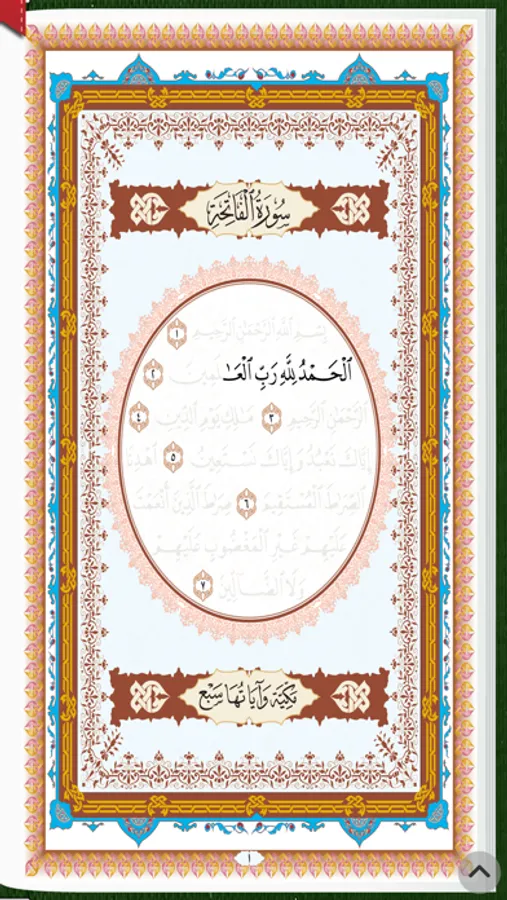 سُورَةُ ٱلْفَاتِحَةِ
بِسْمِ ٱللَّهِ ٱلرَّحْمَٰنِ ٱلرَّحِيمِ ١
ٱلْحَمْدُ لِلَّهِ رَبِّ ٱلْعَـٰلَمِينَ ٢
ٱلرَّحْمَٰنِ ٱلرَّحِيمِ ٣ مَـٰلِكِ يَوْمِ ٱلدِّينِ ٤
إِيَّاكَ نَعْبُدُ وَإِيَّاكَ نَسْتَعِينُ ٥ ٱهْدِنَا
ٱلصِّرَٰطَ ٱلْمُسْتَقِيمَ ٦ صِرَٰطَ ٱلَّذِينَ أَنْعَمْتَ
عَلَيْهِمْ غَيْرِ ٱلْمَغْضُوبِ عَلَيْهِمْ
وَلَا ٱلضَّآلِّينَ ٧
مَكِّيَّة وَآيَاتُهَا سَبْع
١